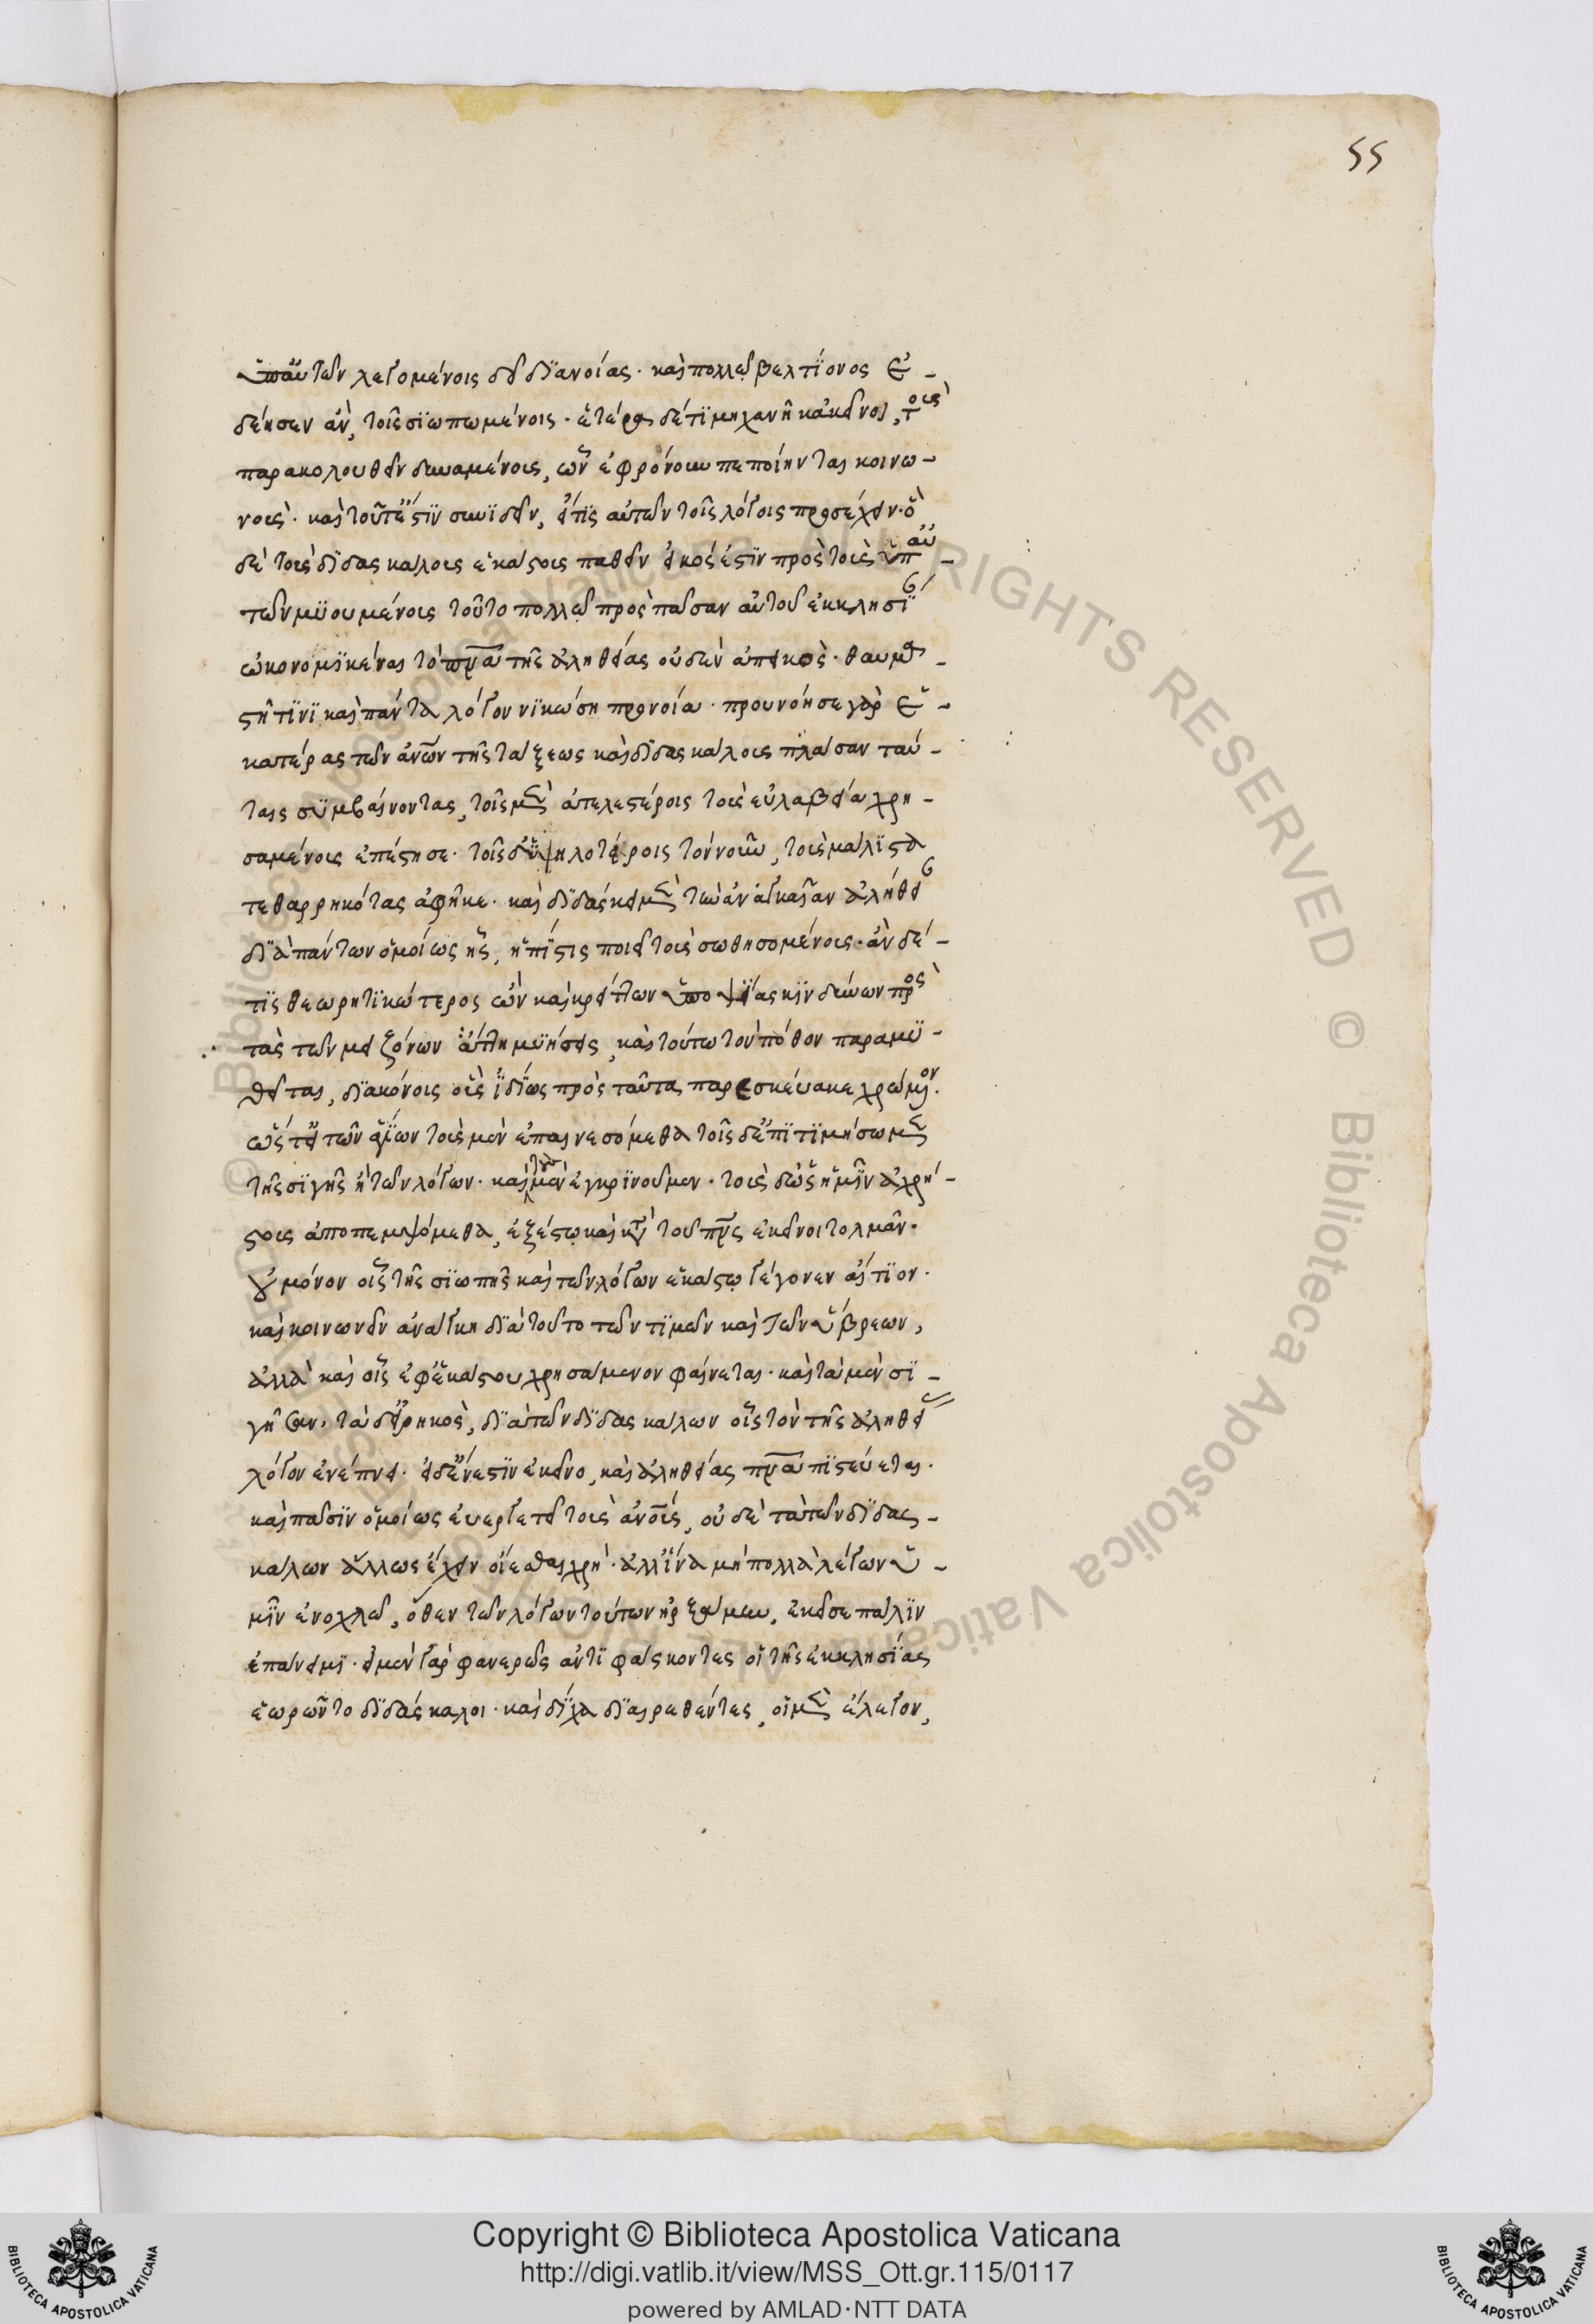 55
ὑπ' αὐτῶν λεγομένοις δεῖ διανοίας. καὶ πολλῷ βελτίονος ἐ-
δέησεν ἂν, τοῖς σιωπωμένοις. ἑτέρα δέ τι μηχανὴ κἀκεῖνοι, τοὺς
παρακολουθεῖν δυναμένους, ὧν ἐφρόνουν πεποίηνται κοινω-
νοὺς. καὶ τοῦτ' ἔστιν συνιδεῖν, εἴ τις αὐτῶν τοῖς λόγοις προσέχειν. ὃ
δὲ τοὺς διδασκάλους ἑκάστους παθεῖν εἰκός ἐστιν πρὸς τοὺς ὑπ' αὐ-
τῶν μυουμένους τοῦτο πολλῷ πρὸς πᾶσαν αὐτοῦ ἐκκλησί
ὠκονομηκέναι τὸ πνα τῆς ἀληθείας οὐδὲν ἀπεικὸς. θαυμα-
στῇ τινι καὶ πάντα λόγον νικώσῃ προνοία. προυνόησε γὰρ ἑ-
κατέρας τῶν ἀνων τῆς τάξεως καὶ διδασκάλους πλάσαν ταύ-
ταις συμβαίνοντας, τοῖς μὲν ἀτελεστέροις τοὺς εὐλαβεία χρη-
σαμένους ἐπέστησε. τοῖς δ' ὑψηλοτέροις τὸν νοῦν, τοὺς μάλιστα
τεθαρρηκότας ἀφῆκε. καὶ διδάσκει μὲν τὴν ἀναγκαίαν ἀλήθει
διὰ πάντων ὁμοίως ἧς, ἡ πίστις ποιεῖ τοὺς σωθησομένους. ἂν δέ
τις θεωρητικώτερος ὢν καὶ κρείττων ὑποψίας κινδύνων πρὸς
τὰς τῶν μειζόνων μυήσεις, καὶ τούτω τὸν πόθον παραμυ-
θεῖται, διακόνοις οὓς ἰδίως πρὸς ταῦτα παρεσκεύακε χρώμενον.
ὥστ' εἰ τῶν ἁγίων τοὺς μὲν ἐπαινεσόμεθα τοῖς δ' ἐπιτιμήσωμεν
τῆς σιγῆς ἢ τῶν λόγων. καὶ τοὺς μὲν ἐγκρινοῦμεν. τοὺς δ' ὡς ἡμῖν ἀχρή-
στους ἀποπεμψόμεθα, ἐξέστω καὶ κατὰ τοῦ πνς ἐκεῖνοι τολμᾶν.
οὐ μόνον οἷς τῆς σιωπῆς καὶ τῶν λόγων ἑκάστω γέγονεν αἴτιον.
καὶ κοινωνεῖν ἀνάγκη διὰ τοῦτο τῶν τιμῶν καὶ τῶν ὕβρεων,
ἀλλὰ καὶ οἷς ἐφ' ἑκάστου χρησάμενον φαίνεται. καὶ τὰ μὲν σι-
γῆσαν. τὰ δ' εἰρηκὸς, διὰ τῶν διδασκάλων οἷς τὸν τῆς ἀληθεί
λόγον ἐνέπνει. εἰ δ' ἕν ἐστιν ἐκεῖνο, καὶ ἀληθείας πνα πιστεύεται.
καὶ πᾶσιν ὁμοίως εὐεργετεῖ τοὺς ἀνους, οὐδὲ τὰ τῶν διδασ-
κάλων ἄλλως ἔχειν οἴεσθαι χρὴ. ἀλλ' ἵνα μὴ πολλὰ λέγων ὑ-
μῖν ἐνοχλῶ, ὅθεν τῶν λόγων τούτων ἠρξάμην, ἐκεῖσε πάλιν
ἐπάνειμι. εἰ μὲν γὰρ φανερῶς ἀντιφάσκοντες οἱ τῆς ἐκκλησίας
ἑωρῶντο διδάσκαλοι. καὶ δίχα διαιρεθέντες, οἱ μὲν ἔλεγον,
Copyright © Biblioteca Apostolica Vaticana
http://digi.vatlib.it/view/MSS_Ott.gr.115/0117
powered by AMLAD·NTT DATA